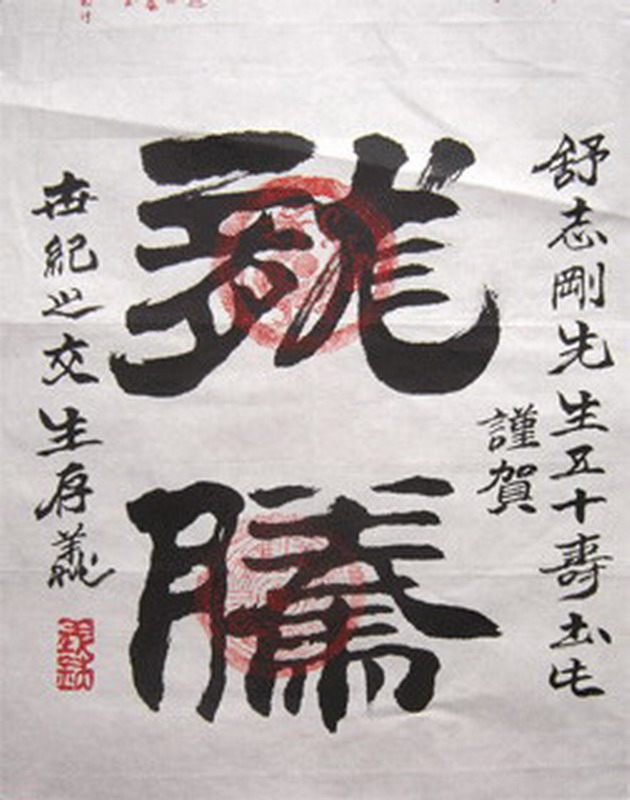 舒志剛先生五十壽
謹賀
龍騰
世紀之交生存義